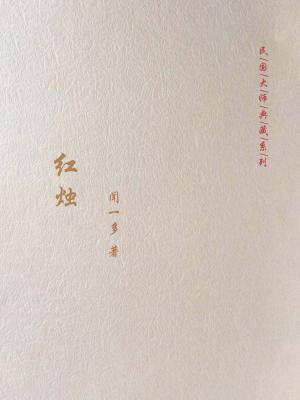 民国大师典藏系列
红烛
闻一多 著